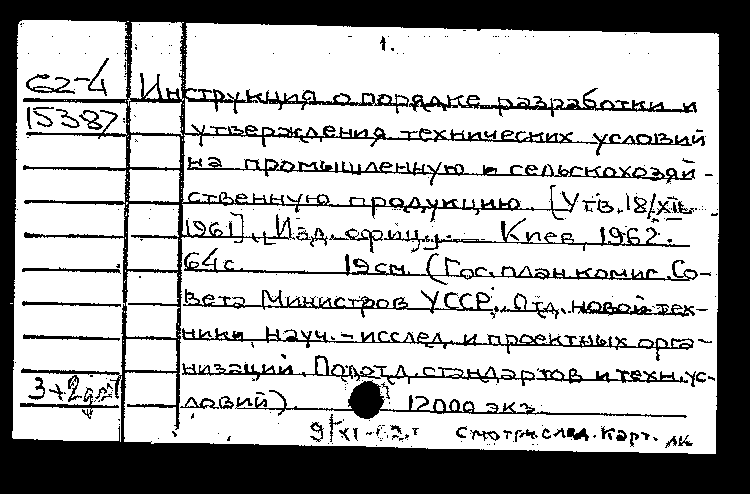 1.
62-4 Инструкция о порядке разработки и
15387 утверждения технических условий
на промышленную и сельскохозяй-
ственную продукцию. [Утв. 18/XII
1961]. [Изд. офиц.]. — Киев, 1962.
64 с. 19 см. (Гос. план. комис. Со-
вета Министров УССР. Отд. новой тех-
ники, науч.-исслед. и проектных орга-
низаций. Подотд. стандартов и техн. ус-
ловий). 12000 экз.
3+2 доп
9/XI-62 г Смотри след. карт. лк